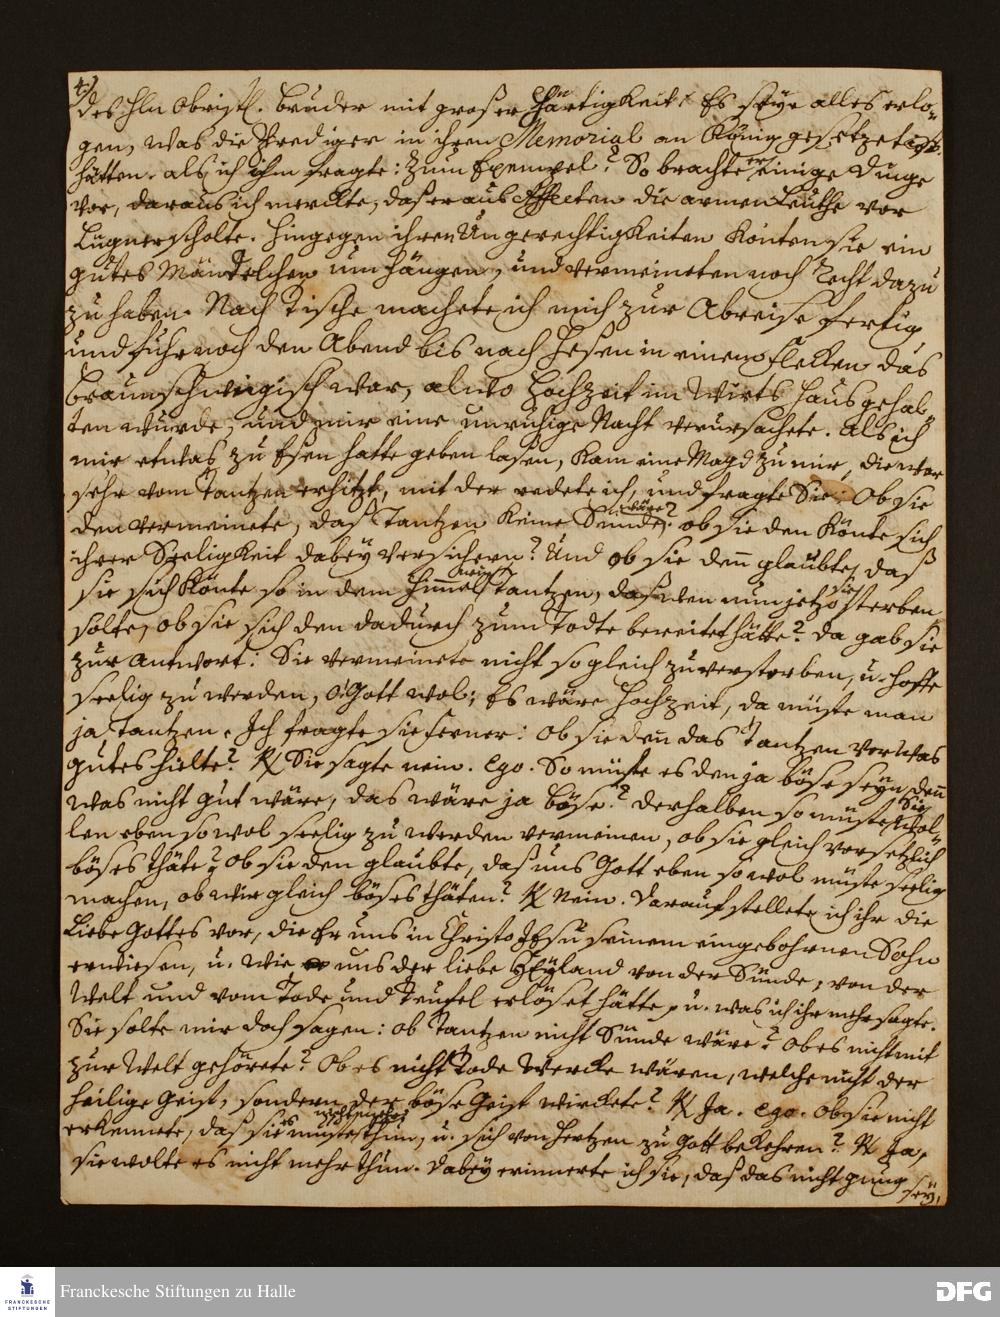 4.)
des Hln Obristl. Bruder mit großer Härtigkeit: Es seye alles erlo-
gen, was die Prediger in ihren Memorial an König gesetzet
hätten. als ich ihm fragte: zum Exempel? So brachte er einige Dinge
vor, daraus ich merckte, daß er aus Affecten die armen Leuthe vor
Lügner scholte. Hingegen ihren Ungerechtigkeiten könten sie ein
gutes Mäntelchen umhängen, und vermeineten noch Recht dazu
zu haben. Nach Tische machete ich mich zur Abreise fertig
und fuhr noch den Abend bis nach Hesen in einem Flecken das
Braunschweigisch war, alwo Hochzeit im Wirts Haus gehal-
ten wurde, und mir eine unruhige Nacht verursachete. Als ich
mir etwas zu Eßen hatte geben laßen, kam eine Magd zu mir, die war
sehr vom Tantzen erhitzt, mit der redete ich, und fragte Sie: Ob sie
den vermeinete, daß Tantzen keine Sünde wäre? ob sie den könte sich
ihrer Seeligkeit dabey versichern? Und ob sie den glaubte, daß
sie sich könte so in dem Himmel nein tantzen, daß wen nun jetzo sie sterben
solte, ob sie sich den dadurch zum Todte bereitet hätte? da gab sie
zur Antwort: Sie vermeinete nicht so gleich zu versterben, u. hoffe
seelig zu werden, o Gott wol; Es wäre Hochzeit, da müste man
ja Tantzen. Ich fragte sie ferner: Ob sie den das Tantzen vor was
gutes hielte? R/ Sie sagte nein. Ego. So müste es den ja böse seyn, den
was nicht gut wäre, das wäre ja böse? derhalben so müste Sie wol-
len eben so wol seelig zu werden vermeinen, ob sie gleich vorsetzlich
böses thäte? Ob sie den glaubte, daß uns Gott eben so wol müste seelig
machen, ob wir gleich böses thäten? R/ Nein. Darauf stellete ich ihr die
Liebe Gottes vor, die Er uns in Christo JEsu seinem eingebohrnen Sohn
erwiesen, u. wie uns der liebe Heyland von der Sünde, von der
Welt und vom Tode und Teufel erlöset hätte, u. was ich ihr mehr sagte.
Sie solte mir doch sagen: ob Tantzen nicht Sünde wäre? Ob es nicht mit
zur Welt gehörete? Ob es nicht Tode Wercke wären, welche nicht der
heilige Geist, sondern der böse Geist wirckete? R/ Ja. Ego. Ob sie nicht
erkennete, daß sie es nicht mehr müste thun, u. sich von Hertzen zu Gott bekehren? R/ Ja,
sie wolte es nicht mehr thun. Dabey erinnerte ich sie, daß das nicht gnug
sey,
FRANCKESCHE STIFTUNGEN
Franckesche Stiftungen zu Halle
DFG